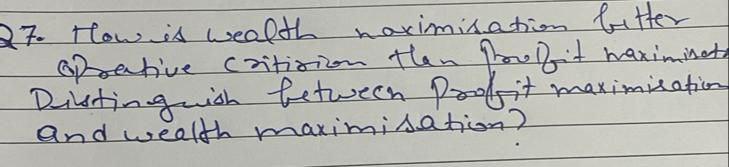 Q7. How is wealth maximisation better
operative criterion than Profit maximisat
Distinguish between Profit maximisation
and wealth maximisation?